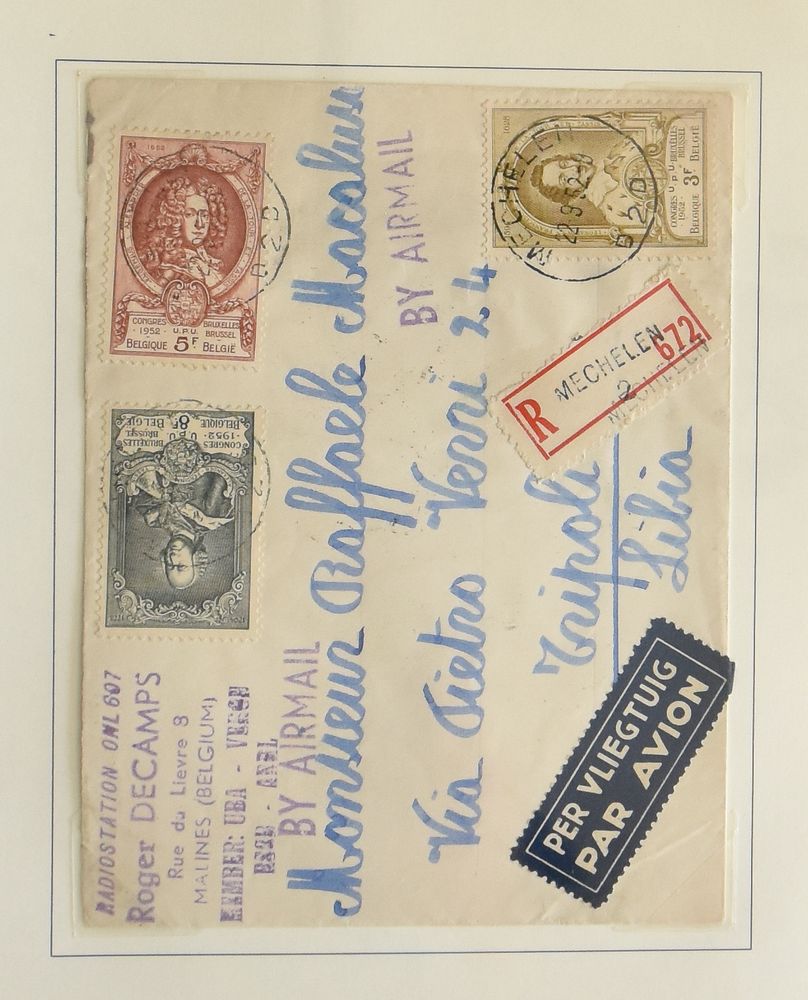 RADIOSTATION ONL 607
Roger DECAMPS
Rue du Lievre 8
MALINES (BELGIUM)
MEMBER: UBA -
BY AIRMAIL
CONGRES BRUXELLES
1952 U.P.U. BRUSSEL
BELGIQUE 8F BELGIË
1652
CONGRES BRUXELLES
1952 - U.P.U. BRUSSEL
BELGIQUE 5F BELGIË
B2B
Monsieur Raffaele Macaluso
BY AIRMAIL
Via Pietro Verri 24
Tripoli
Libia
R MECHELEN 672
2
MECHELEN
CONGRES U.P.U BRUXELLES
1952 BRUSSEL
BELGIQUE 3F BELGIË
MECHELEN
22-9-52
B2B
PER VLIEGTUIG
PAR AVION